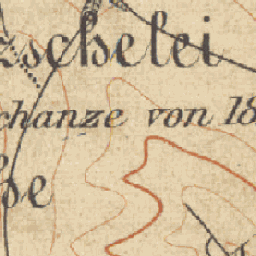 zschelei
chanze von 18
he